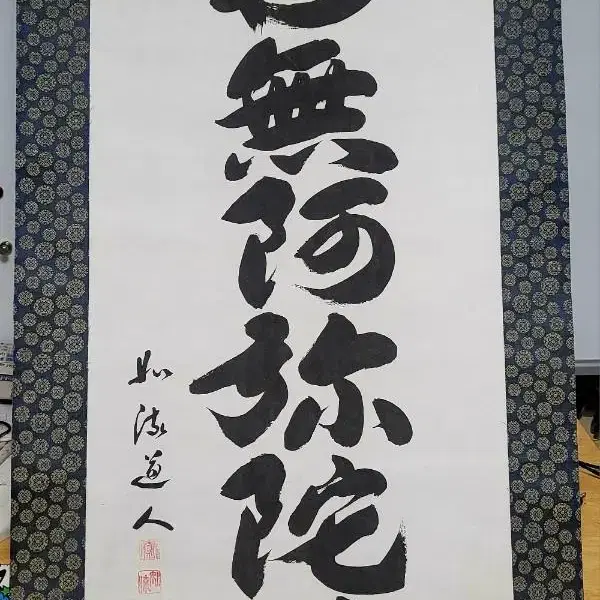 無阿弥陀
如流道人